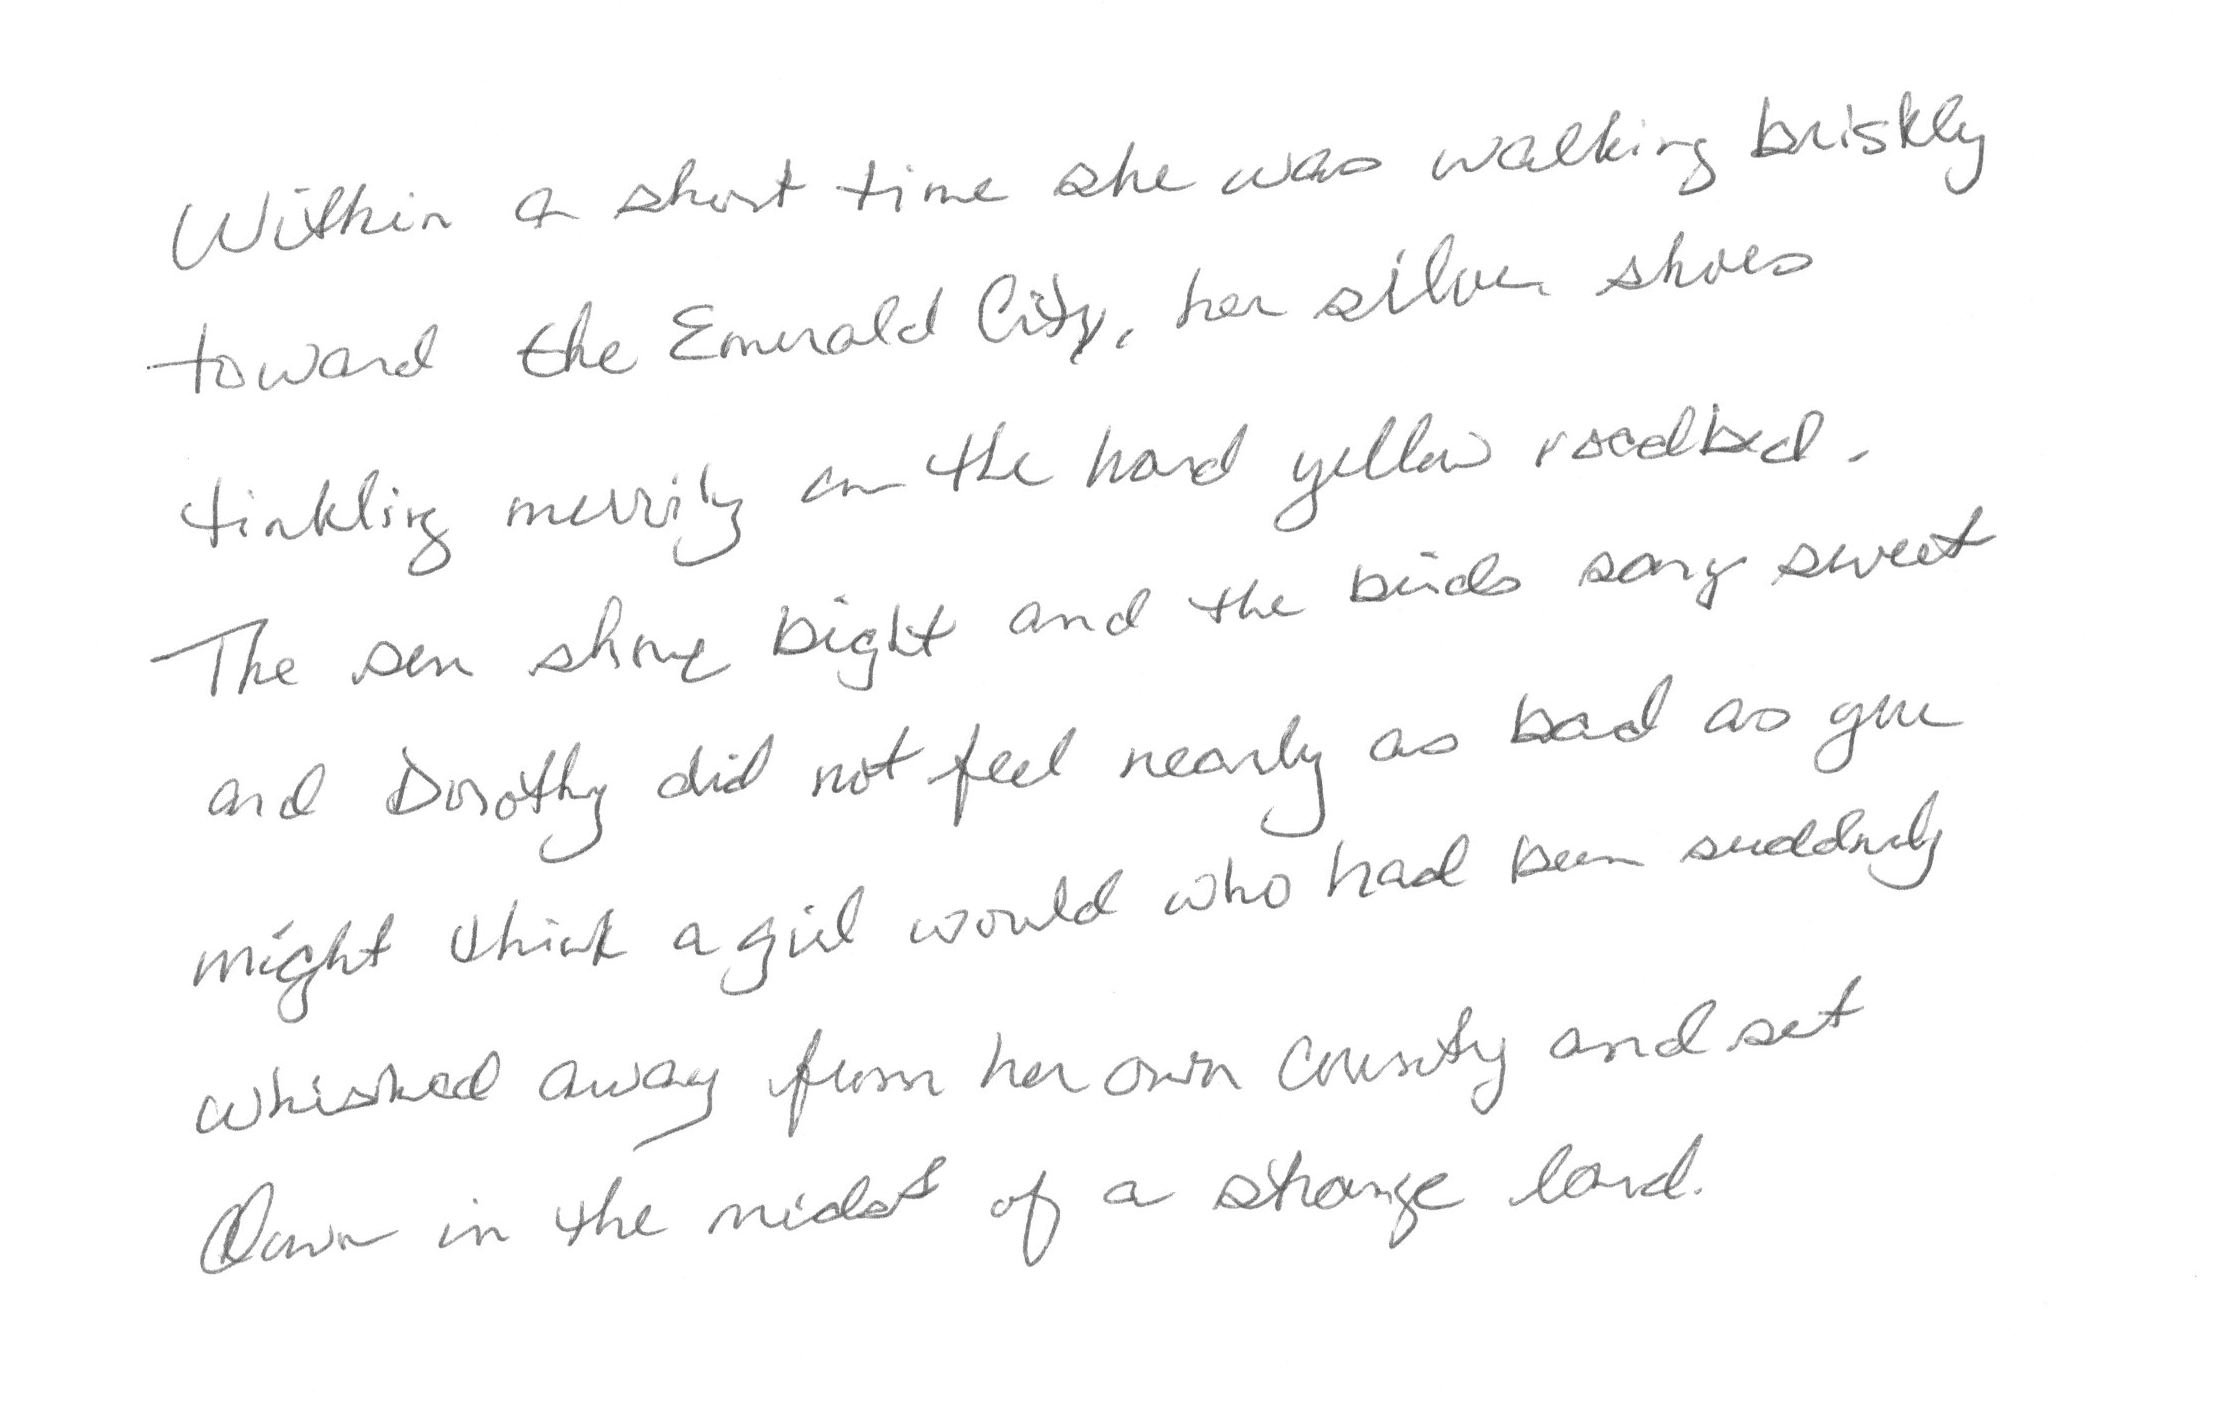 Within a short time she was walking briskly
toward the Emerald City, her silver shoes
tinkling merrily on the hard yellow roadbed.
The sun shone bright and the birds sang sweet
and Dorothy did not feel nearly as bad as you
might think a girl would who had been suddenly
whisked away from her own country and set
Down in the midst of a strange land.